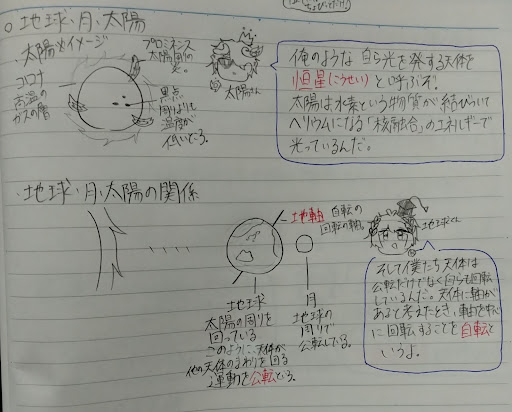 ○地球・月・太陽
太陽のイメージ
プロミネンス
太陽周りの
炎。
コロナ
高温の
ガスの層
黒点
周りよりも
温度が
低いところ。
太陽さん
俺のような自ら光を発する天体を
恒星(こうせい)と呼ぶぞ!
太陽は水素という物質が結びついて
ヘリウムになる「核融合」のエネルギーで
光っているんだ。
・地球・月・太陽の関係
地軸 自転の
回転の軸。
地球くん
地球
太陽の周りを
回っている
このように、天体が
他の天体のまわりを回る
運動を公転という。
月
地球の
周りで
公転してる。
そして僕たち天体は
公転だけでなく自らも回転
しているんだ。天体に軸が
あると考えたとき、軸を中心
に回転することを自転と
いうよ。